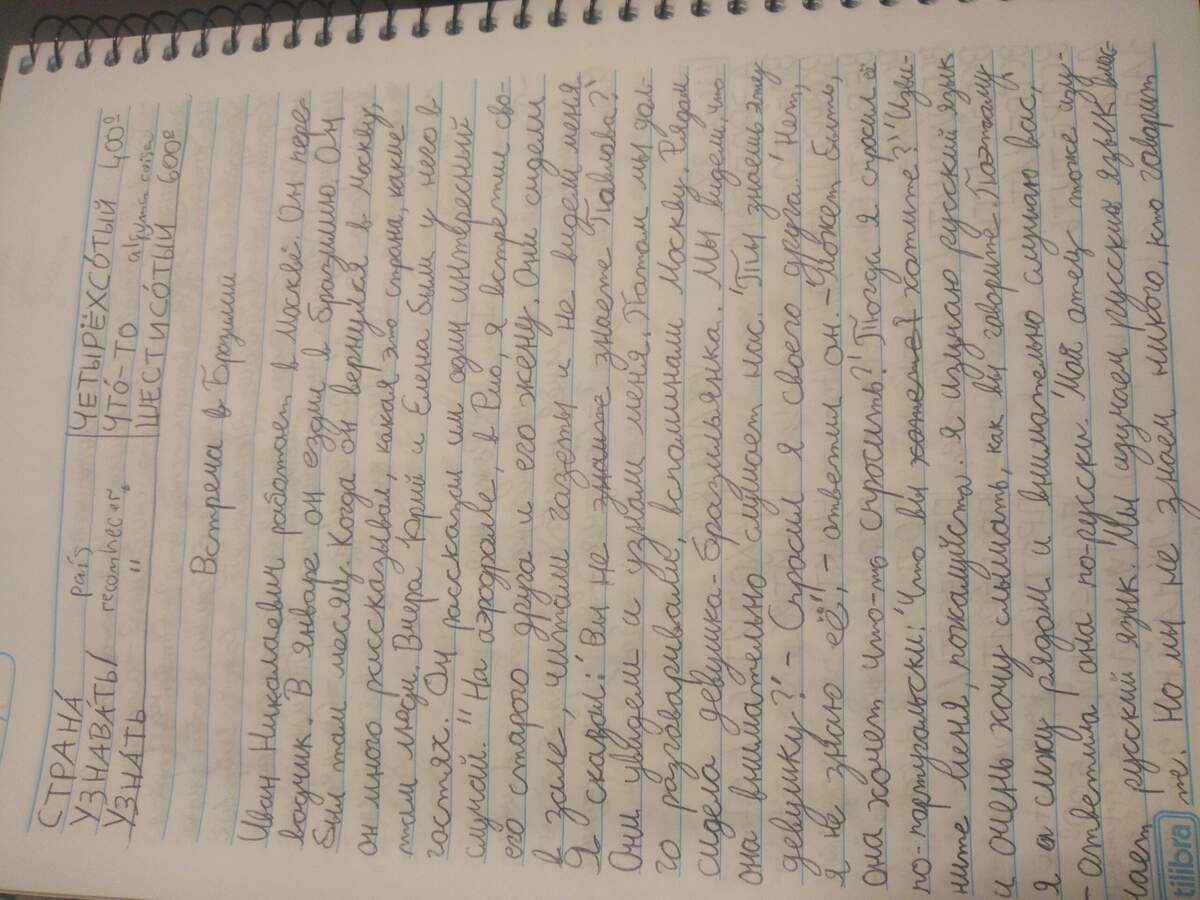 СТРАНА́ país
УЗНАВА́ТЬ reconhecer
УЗНА́ТЬ "
ЧЕТЫРЁХСО́ТЫЙ 400º
ЧТО́-ТО alguma coisa
ШЕСТИСО́ТЫЙ 600º
Встреча в Бразилии
Иван Николаевич работает в Москве. Он пере-
водчик. В январе он ездил в Бразилию. Он
был там месяц. Когда он вернулся в Москву,
он много рассказывал, какая это страна, какие
там люди. Вчера Юрий и Елена были у него в
гостях. Он рассказал им один интересний
случай. "На аэродроме, в Рио, я встретил сво-
его старого друга и его жену. Они сидели
в зале, читали газеты и не видели меня
Я сказал: Вы не знаете знаете Павлова?"
Они увидели и узнали меня. Потом мы дол-
го разговаривали, вспоминали Москву. Рядом
сидела девушка-бразильянка. Мы видели, что
она внимательно слушает нас. "Ты знаешь эту
девушку?" - Спросил я своего друга. "Нет,
я не знаю её", - ответил он. - "Может быть,
она хочет что-то спросить?" Тогда я спросил её
по-португальски: "Что вы хотетет хотите?" "Изви-
ните меня, пожалуйста. я изучаю русский язык
и очень хочу слышать, как вы говорите. Поэтому
я сижу рядом и внимательно слушаю вас,"
- ответила она по-русски. "Мой отец тоже изу-
чает русский язык. Мы изучаем русский язык вмес-
те. Но мы не знаем никого, кто говорит
tilibra